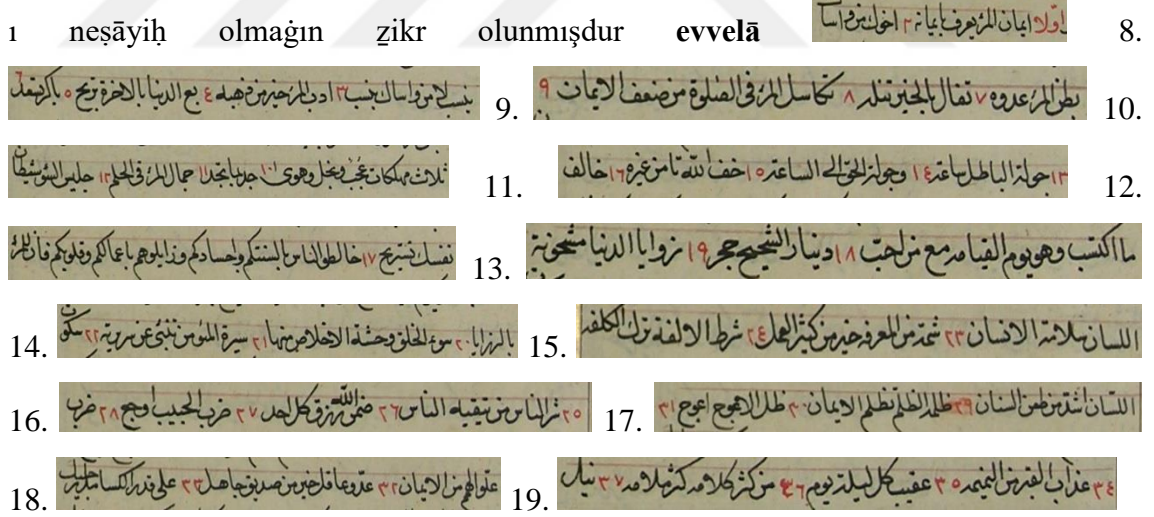 ı neṣāyiḥ olmaġın ẕikr olunmışdur evvelā اوّلا ايمان المرء يعرف بايمانه ٢ اخوك من واسا 8.
بنسب لا من واساك بنسب ٣ ادب المرء خير من ذهبه ٤ بع الدنيا بالاخرة تربح ٥ باكر تسعد ٦ 9. بطن المرء عدوه ٧ تفال بالخير تنله ٨ تكاسل المرء فى الصلوة من ضعف الايمان ٩ 10.
ثلاث مهلكات عجب وبخل وهوى ١٠ جد بما تجد ١١ جمال المرء فى الحلم ١٢ جليس السوء شيطان 11. ١٣ جولة الباطل ساعة ١٤ وجولة الحق الى الساعة ١٥ خف الله تامن غيره ١٦ خالف 12.
نفسك تستريح ١٧ خالطوا الناس بالسنتكم واجسادكم وزايلوهم باعمالكم وقلوبكم فان للمرء 13. ما اكتسب وهو يوم القيامة مع من احب ١٨ دينار الشحيح حجر ١٩ زوايا الدنيا مشحونة
14. بالرزايا ٢٠ سوء الخلق وحشة لا خلاص منها ٢١ سيرة المؤمن تنبئ عن سريرته ٢٢ سكوت 15. اللسان سلامة الانسان ٢٣ شمة من المعرفة خير من كثير العمل ٢٤ شرط الالفة ترك الكلفة
16. ٢٥ شر الناس من تتقيه الناس ٢٦ ضمن الله رزق كل احد ٢٧ ضرب الحبيب اوجع ٢٨ ضرب 17. اللسان اشد من طعن السنان ٢٩ ظلم يظلم الايمان ٣٠ ظل الاعوج اعوج ٣١
18. علو الهمة من الايمان ٣٢ عدو عاقل خير من صديق جاهل ٣٣ على قدر الكساء مد رجليك 19. ٣٤ عذاب القبر من النميمة ٣٥ عقيب كل ليلة يوم ٣٦ من كثر كلامه كثر ملامه ٣٧ نيل